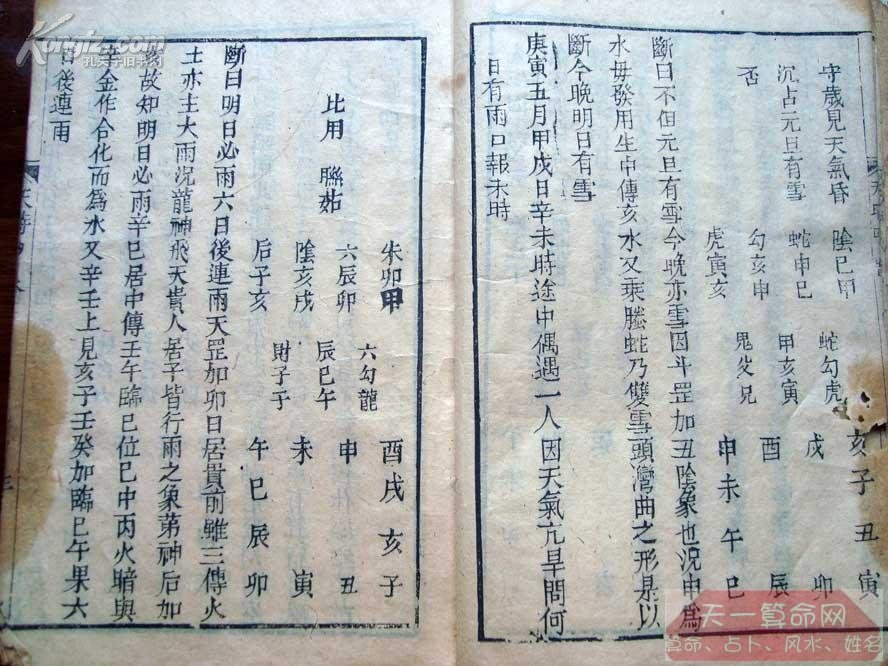 守歲見天氣昏
陰巳甲
蛇勾虎
亥子丑寅
沉占元旦有雪
蛇申巳
甲亥寅
戌
卯
勾亥申
酉
辰
否
虎寅亥
鬼父兄
申未午巳
斷曰不但元旦有雪今晚亦雪因斗罡加丑陰象也況申爲
水毋發用生中傳亥水又乘螣蛇乃雙雪頭灣曲之形是以
斷今晚明日有雪
庚寅五月甲戊日辛未時途中偶遇一人因天氣亢旱問何
日有雨口報未時
朱卯甲
六勾龍
酉戌亥子
六辰卯
辰巳午
申
丑
比用
聯茹
陰亥戌
未
寅
后子亥
財子子
午巳辰卯
斷曰明日必雨六日後連雨天罡加卯日居貴前雖三傳火
土亦主大雨況龍神飛天貴人居子皆行雨之象第神后加
故知明日必雨辛巳居中傳壬午臨巳位巳中丙火暗與
辛金作合化而爲水又辛壬上見亥子壬癸加臨巳午果六
日後連雨
天時
Kongfz.com
孔夫子旧书网
天一算命网
算命、占卜、风水、姓名